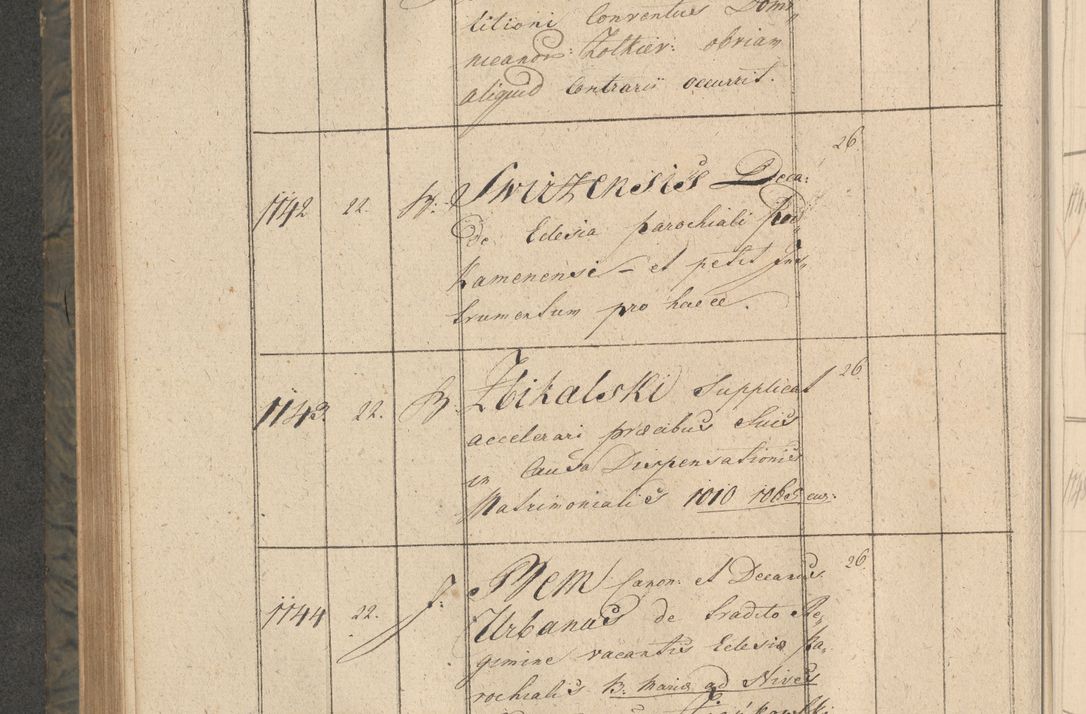 titioni Conventus Domi,,
nicanor: Zolkier: obviam
aliquid Contrarii occurrit.
26.
1142 22. Swirzensis Deca:
de Eclesia parochiali Pod,,
Kamenensi – et petit Ins,,
trumentum pro hacce.
26.
1143. 22. Zbikalski Supplicat
accelerari præcibus Suis
in Causa Dispensationis
Matrimonialis 1010
26.
1144 22. J: Canon: et Decanus
Urbanus de tradito Re,
gimine vacantis Eclesiæ Pa,
rochialis B. Mariæ ad Nives